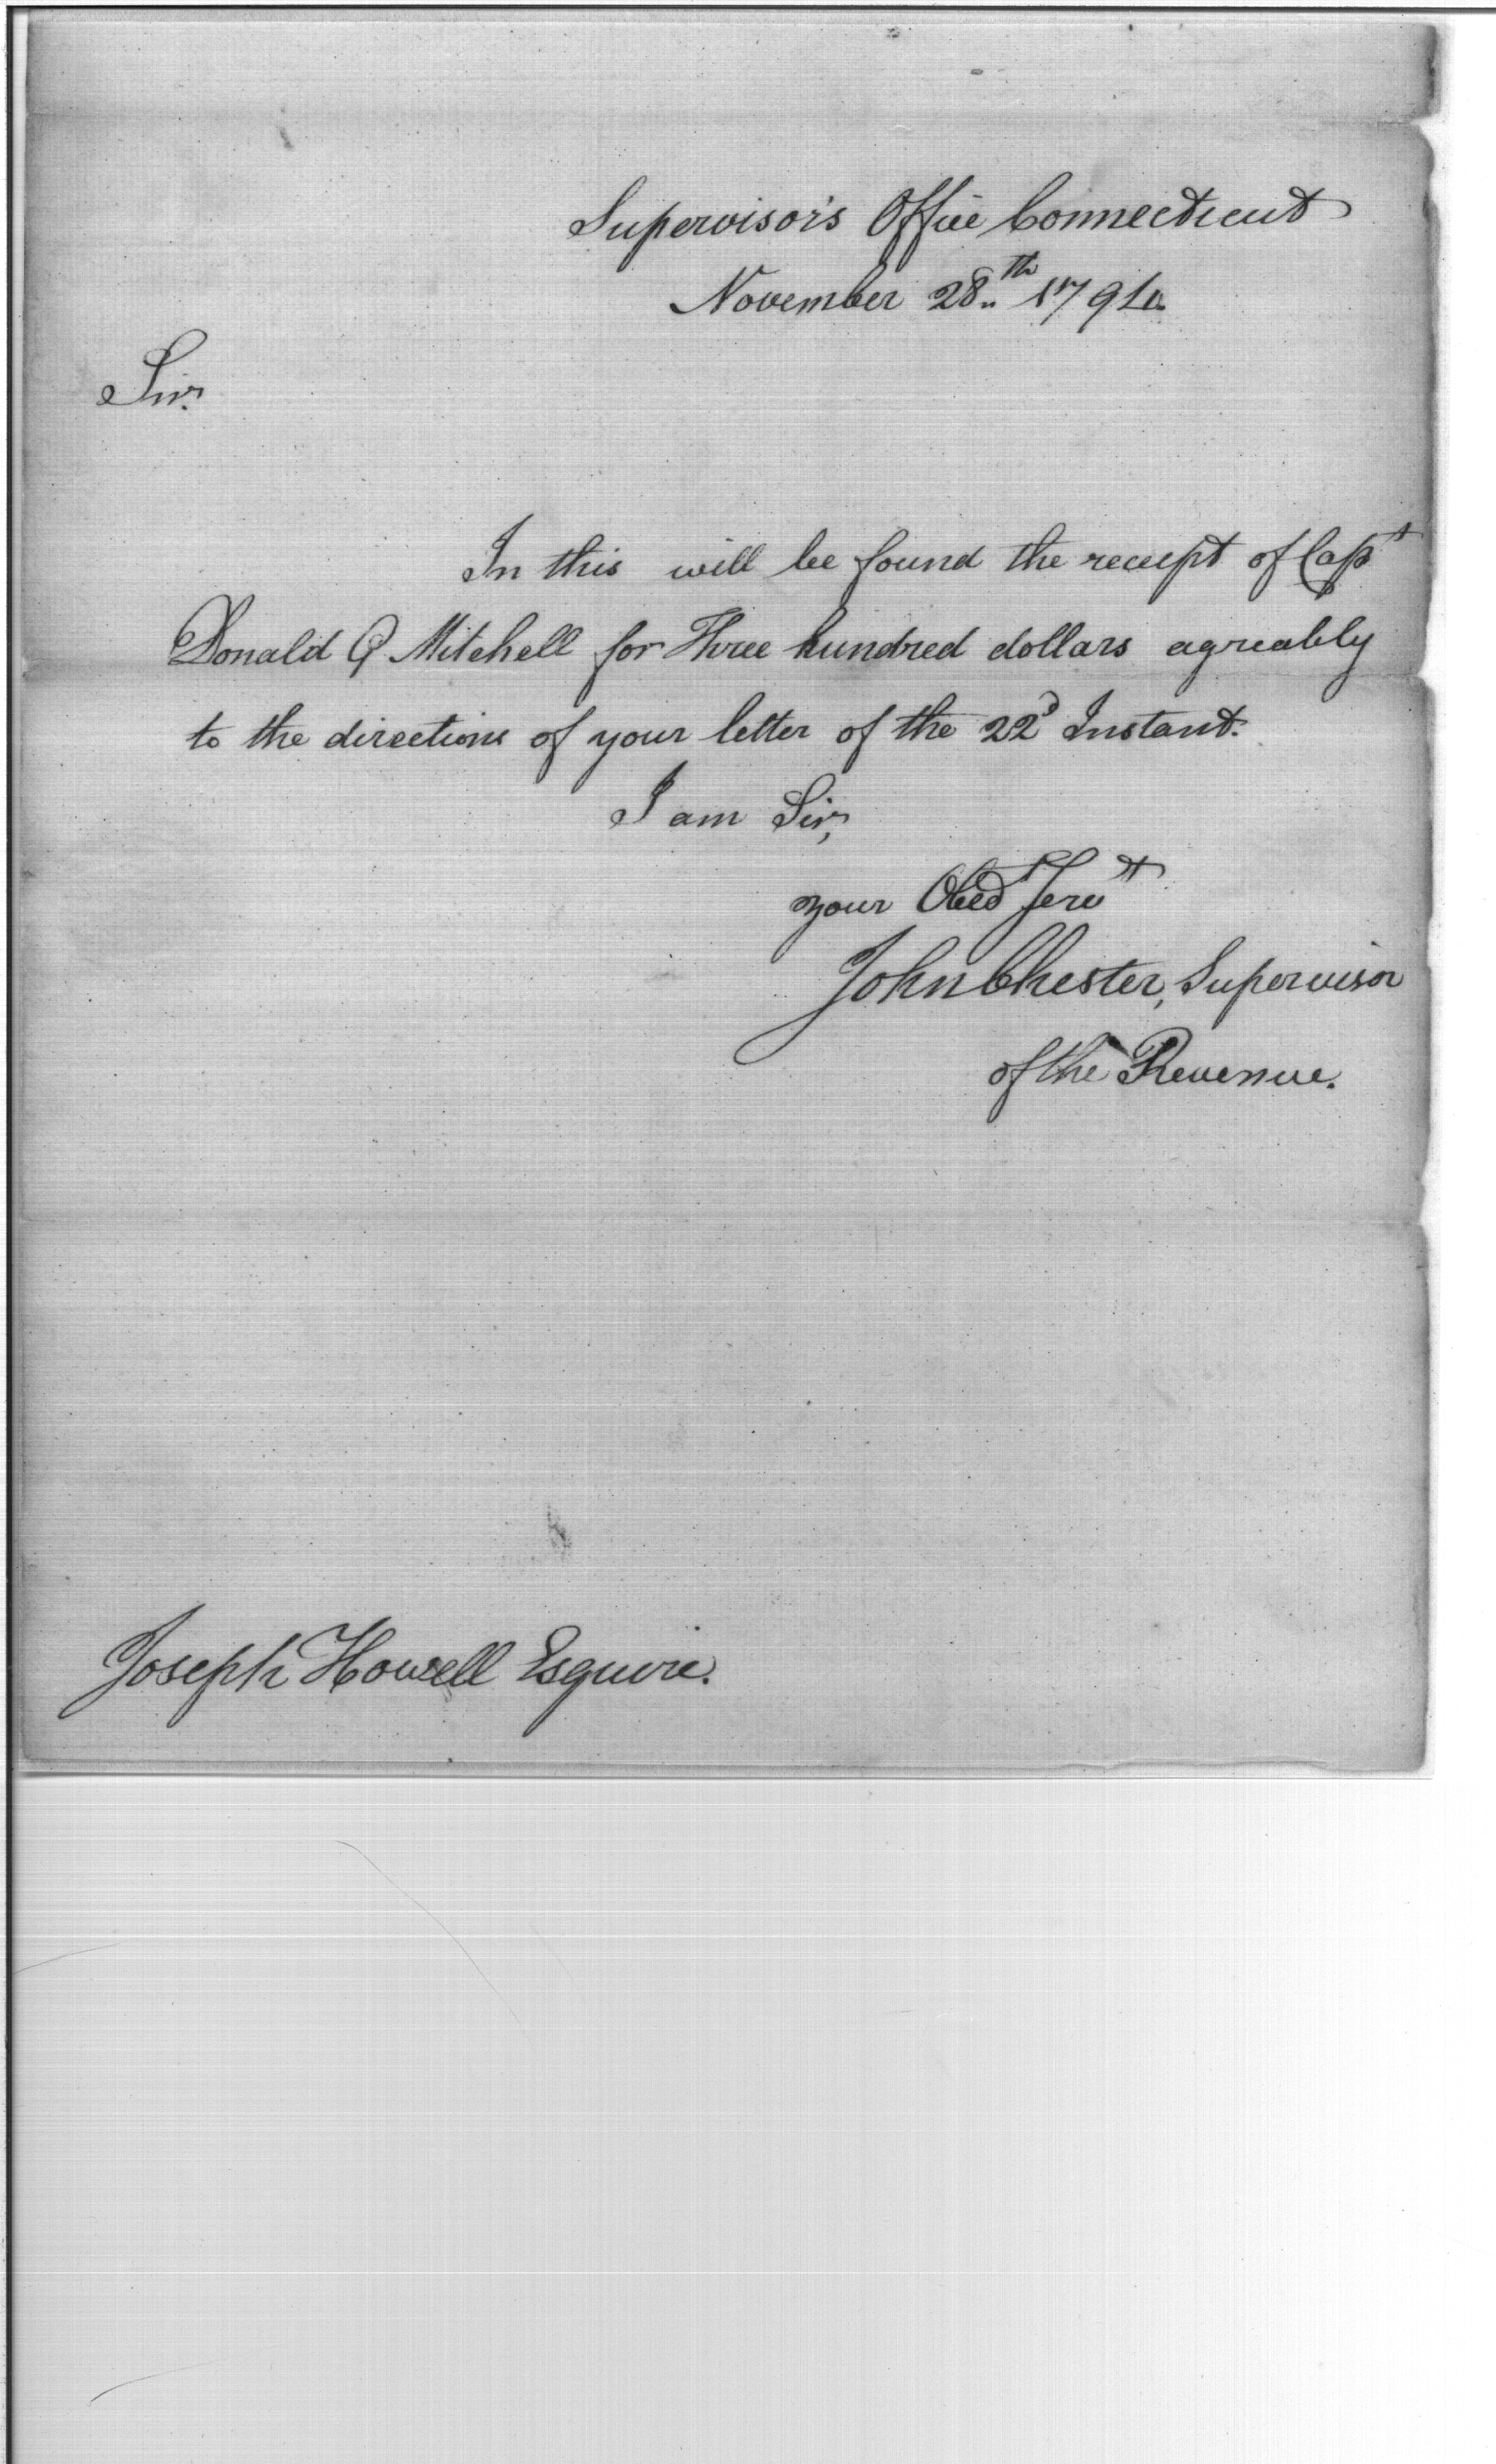 Supervisor's Office Connecticut
November 28th 1794.
Sir.
In this will be found the receipt of Capt
Donald G Mitchell for Three hundred dollars agreably
to the directions of your letter of the 22d Instant.
I am Sir,
your Obed Servt
John Chester, Supervisor
of the Revenue.
Joseph Howell Esquire.